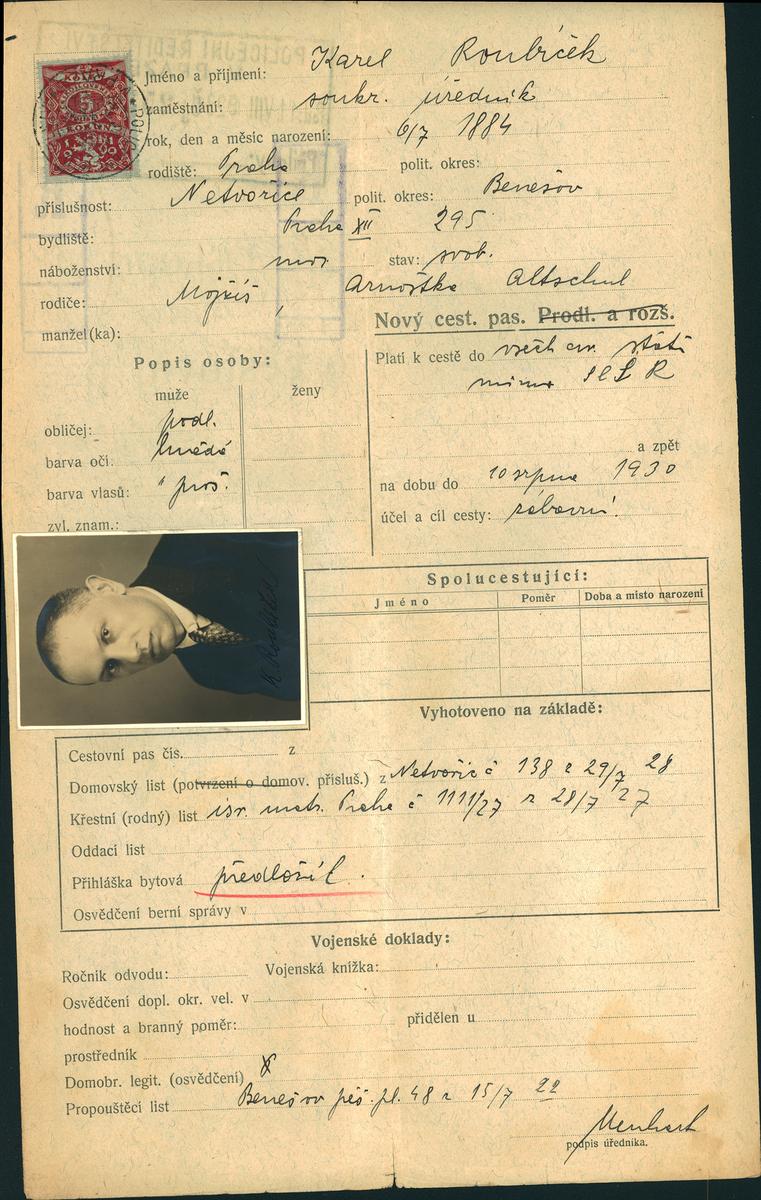 POLICEJNÍ ŘEDITELSTVÍ
Jméno a příjmení: Karel Roubíček
zaměstnání: soukr. úředník
rok, den a měsíc narození: 6/7 1884
rodiště: Praha polit. okres:
příslušnost: Netvořice polit. okres: Benešov
bydliště: Praha XII 295
náboženství: mos stav: svob.
rodiče: Mojžíš, Arnoštka Altschul
manžel(ka):
Nový cest. pas. Prodl. a rozš.
Popis osoby:
muže ženy
obličej: podl.
barva očí: hnědé
barva vlasů: " proš.
zvl. znam.:
Platí k cestě do všech ev. států
mimo SSSR
a zpět
na dobu do 10 srpna 1930
účel a cíl cesty: zábavní
K Roubíček
Spolucestující:
Jméno Poměr Doba a místo narození
Vyhotoveno na základě:
Cestovní pas čís. z
Domovský list (potvrzení o domov. přísluš.) z Netvořic č 138 z 29/7 28
Křestní (rodný) list isr. matr. Praha č 1111/27 z 28/7 27
Oddací list
Přihláška bytová předložil.
Osvědčení berní správy v
Vojenské doklady:
Ročník odvodu: Vojenská knížka:
Osvědčení dopl. okr. vel. v
hodnost a branný poměr: přidělen u
prostředník
Domobr. legit. (osvědčení)
Propouštěcí list Benešov pěš. pl. 48 z 15/7 22
Menhart
podpis úředníka.